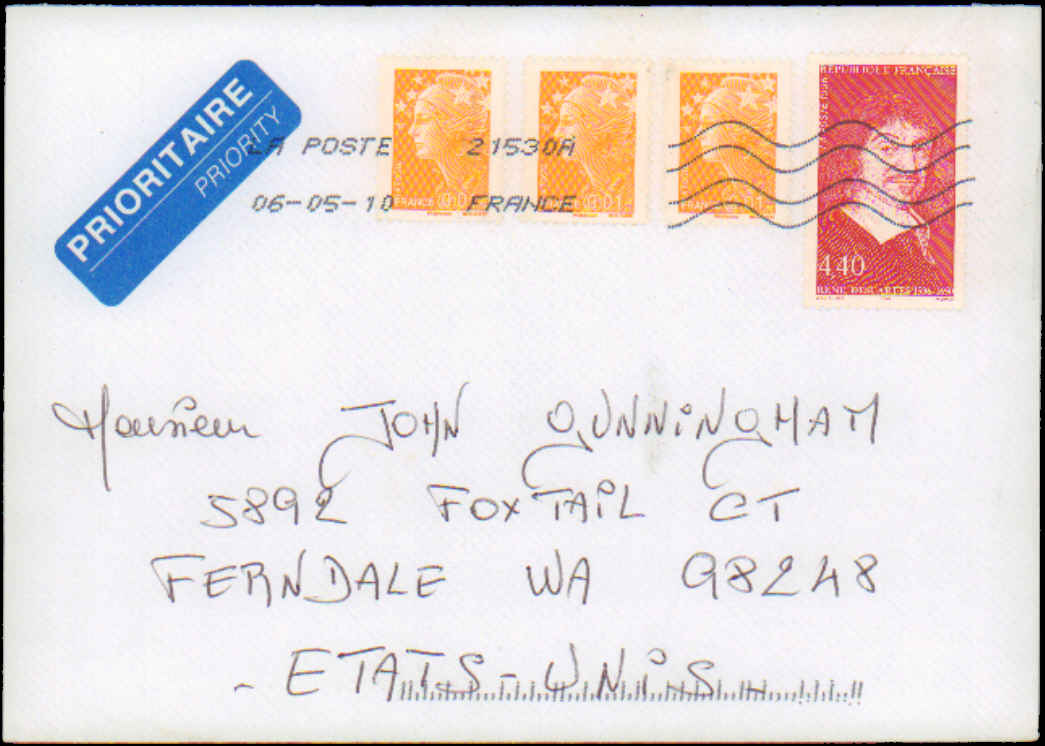 PRIORITAIRE
PRIORITY
LA POSTE 21530A
06-05-10 FRANCE
FRANCE 0,01
FRANCE 0,01
FRANCE 0,01
REPUBLIQUE FRANÇAISE
POSTE 1996
4,40
RENÉ DESCARTES 1596-1650
Monsieur JOHN CUNNINGHAM
5892 FOXTAIL CT
FERNDALE WA 98248
- ETATS-UNIS -